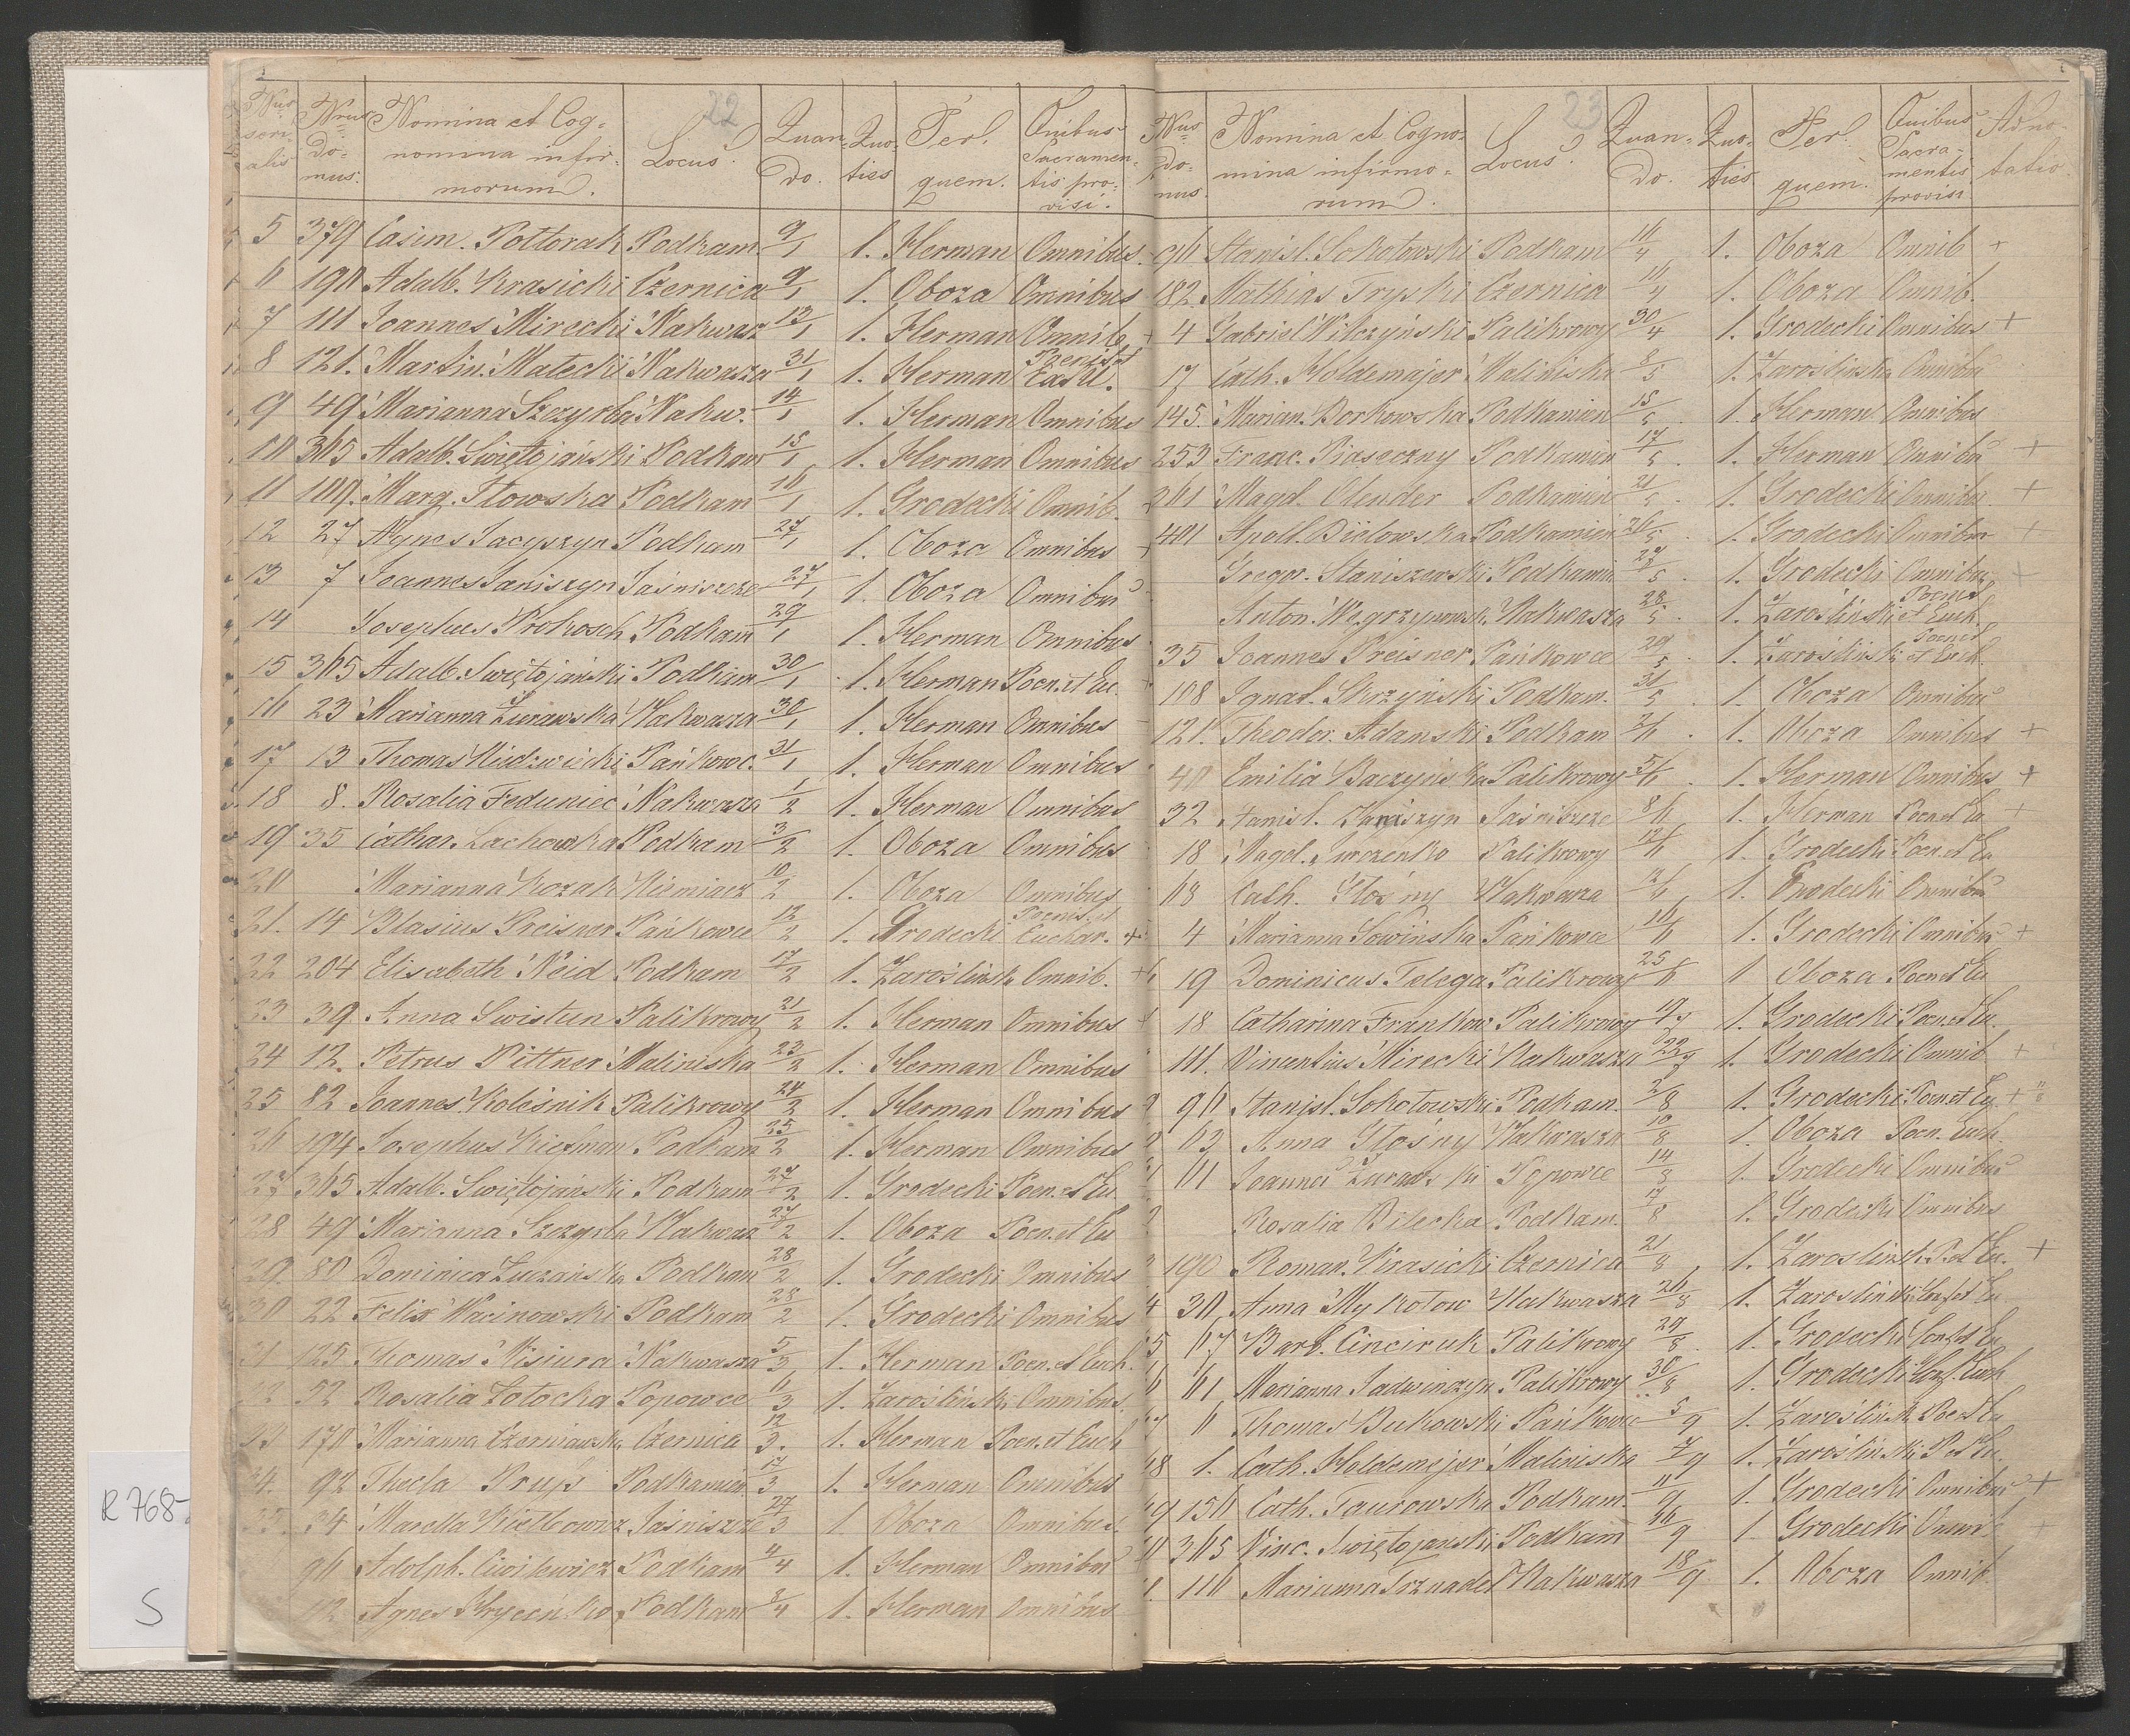 22
Nrus seri alis Nrus Do= mus. Nomina et Cog= nomina infir= morum. Locus. Quan= do. Quo= ties Per quem. Quibus Sacramen= tis pro= visi.
5 379 Casim. Poltorak Podkam. 9/1 1. Herman Omnibus.
6 190 Adalb. Krasicki Czernica 9/1 1. Oboza Omnibus
7 111 Joannes Mirecki Nakwasz 13/1 1. Herman Omnib. +
8 121. Martin. Malecki Nakwasza 31/1 1. Herman
9 49 Marianna Szczyrba Nakw. 14/1 1. Herman Omnibus
10 365 Adalb. Świętojański Podkam 15/1 1. Herman Omnibus
11 109. Marg. Podkam 16/1 1. Grodecki Omnib.
12 27 Agnes Podkam 27/1 1. Oboza Omnibus
13 7 Joannes Janiszyn Jaśniszcze 27/1 1. Oboza Omnibus
14 Josephus Prokosch Podkam 29/1 1. Herman Omnibus
15 365 Adalb. Świętojański Podkam 30/1 1. Herman Poen. et Eu.
16 23 Marianna Żurawska Nakwasza 30/1 1. Herman Omnibus
17 13 Thomas Niedzwiecki Pańkowc. 31/1 1. Herman Omnibus
18 8. Rosalia Feduniec Nakwasza 1/2 1. Herman Omnibus
19 35 Cathar. Zachowska Podkam 3/2 1. Oboza Omnibus
20 Marianna Kozak Niemiacz 10/2 1. Oboza Omnibus
21. 14 Blasius Preisner Pańkowce 12/2 1. Grodecki Poenit. et Euchar. +
22 204 Elisabeth Neid Podkam 17/2 1. Zarośliński Omnib. +
23 39. Anna Swistun Palikrowy 21/2 1. Herman Omnibus
24 12. Petrus Pittner Maliniska 23/2 1. Herman Omnibus
25 82 Joannes Kolésnik Palikrowy 24/2 1. Herman Omnibus
26 194 Josephus Kiefman Podkam 25/2 1. Herman Omnibus
27 365 Adalb. Świętojański Podkam 27/2 1. Grodecki Poen. et Eu
28 49 Marianna Szczyrba Nakwasz 27/2 1. Oboza Poen. et Eu
29. 80 Dominica Łuzańska Podkam 28/2 1. Grodecki Omnibus
30 22 Felix Wacinowski Podkam 28/2 1. Grodecki Omnibus
31 125 Thomas Misiura Nakwasza 5/3 1. Herman Poen. et Euch.
52 Rosalia Zotocka Popowce 11/3 1. Zarośliński Omnibus.
170 Marianna Czerniawska Czernica 12/3. 1. Herman Poen. et Euch
34. 92 Thecla Prus Podkamien. 17/3 1. Herman Omnibus
35. 34 Marella Jaśniszcze 27/3 1 Oboza Omnibus.
96 Adolph. Podkam 4/4 1. Herman Omnibus
92 Agnes Hrycenko Podkam 8/4 1. Herman Omnibus
23
Nrus Do= mus. Nomina et Cogno= mina infirmo= rum. Locus. Quan= do. Quo= ties Per quem. Quibus Sacra= mentis provisi Adno= tatio.
96 Stanisl. Sokołowski Podkam 16/4 1. Oboza Omnib +
182. Mathias Tryski Czernica 16/4 1. Oboza Omnib.
4 Gabriel Wilczyński Palikrowy 30/4 1. Grodecki Omnibus +
17 Cath. Holdemajer Maliniska 8/5 1. Zarośliński Omnibu
145. Marian. Borkowska Podkamien 15/5 1. Herman Omnibus
253 Franc. Piaseczny Podkamien 17/5. 1. Herman Omnibus +
261 Magd. Olender Podkamien 21/5. 1. Grodecki Omnibus +
401 Apoll. Bielowska Podkamien 26/5. 1. Grodecki Omnibus +
Gregor. Staniszewski Podkamien 27/5. 1. Grodecki Omnibus +
Anton. Węgrzynowsk. Nakwasza 28/5. 1. Zarośliński Poenit et Euch.
35 Joannes Preisner Pańkowce 29/5. 1. Zarośliński Poenit et Euch.
108 Ignat. Skrzyński Podkam. 31/5. 1. Oboza Omnibus
121. Theodor. Adamski Podkam 2/6. 1. Oboza Omnibus +
40 Emilia Baczyńska Palikrowy 5/6. 1. Herman Omnibus +
32 Stanisl. Janiszyn Jaśniszcze 8/6 1. Herman Poen. et Eu +
18 Magd. Palikrowy 12/6 1. Grodecki Poen. et Eu
68 Cath. Głośny Nakwasza 12/6 1. Grodecki Omnibus
4 Marianna Sowinska Pańkowce 16/6 1. Grodecki Omnibus +
19 Dominicus Telega Palikrowy 25/6 1 Oboza Poen et Eu
18 Catharina Frankow Palikrowy 19/7 1. Grodecki Poen. et Eu.
111. Vincentius Mirecki Nakwasza 22/7 1. Grodecki Omnib +
96 Stanisl. Sokołowski Podkam. 2/8 1. Grodecki Poen et Eu. + 11/8
63 Anna Głośny Nakwasza 10/8 1. Oboza Poen. Euch.
11 Joannes Żurawski Popowce 14/8 1. Grodecki Omnibus
Rosalia Bilecka Podkam. 17/8 1. Grodecki Omnibus
190 Roman. Krasicki Czernica 21/8 1. Zarośliński P. et Eu. +
30, Anna Mykołow Nakwasza 26/8 1. Zarośliński Conf. et Eu
17 Barb. Cinciruk Palikrowy 29/8. 1. Grodecki Conf. et Eu
61, Marianna Jadwinczyn Palikrowy 30/8 1. Grodecki Conf. Euch
6 Thomas Bukowski Pańkowce 5/9 1. Zarośliński Poe et Eu
1. Cath. Holdemajer Maliniska 7/9 1. Zarośliński P. et Eu.
150 Cath. Taurowska Podkam. 11/9 1. Grodecki Omnibus +
365 Vinc. Świętojanski Podkam 16/9 1 Grodecki Omnib +
110 Marianna Trznadel Nakwasza 18/9 1. Oboza Omnib.
R 768-
S